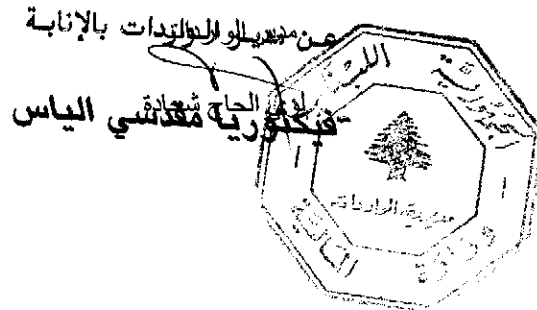 عن مدير الواردات بالإنابة
لؤي الحاج شحادة
فيكتوريا مقدسي الياس
الجمهورية اللبنانية
مديرية الواردات
وزارة المالية